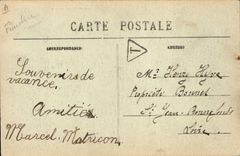 CARTE POSTALE
CORRESPONDANCE
ADRESSE
T
Souvenirs de
vacance.
Amitiés
Marcel Matricon
Mr Henri
Propriété Bonnet
St Jean Bonnefonds
Loire